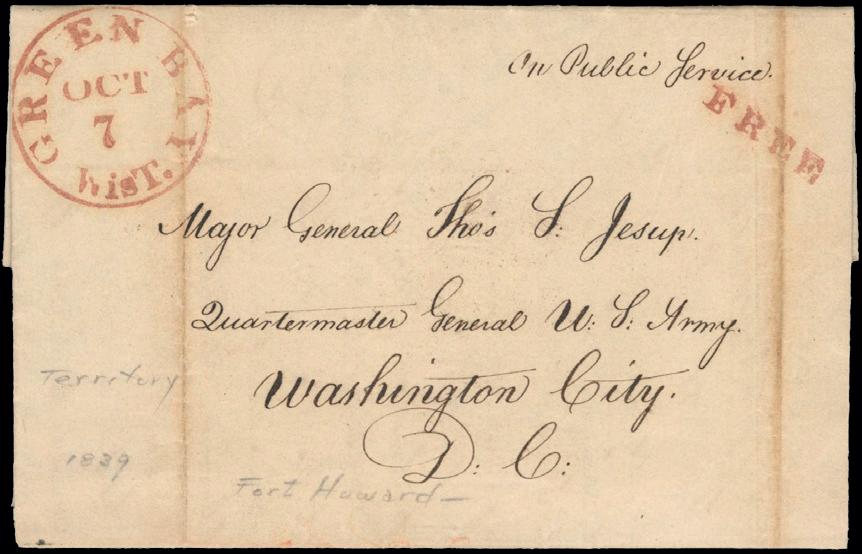 GREEN BAY
OCT
7
WisT.
On Public Service.
FREE
Major General Tho's S: Jesup.
Quartermaster General U: S: Army.
Washington City.
D: C:
Territory
1839
Fort Howard—